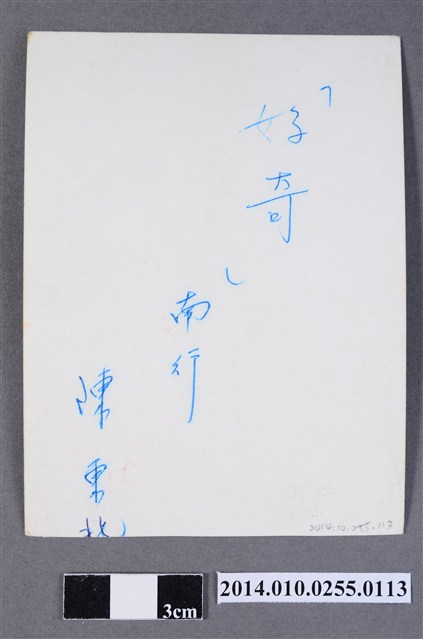 「好奇」
南行
陳東
2014.10.255.113
3cm
2014.010.0255.0113